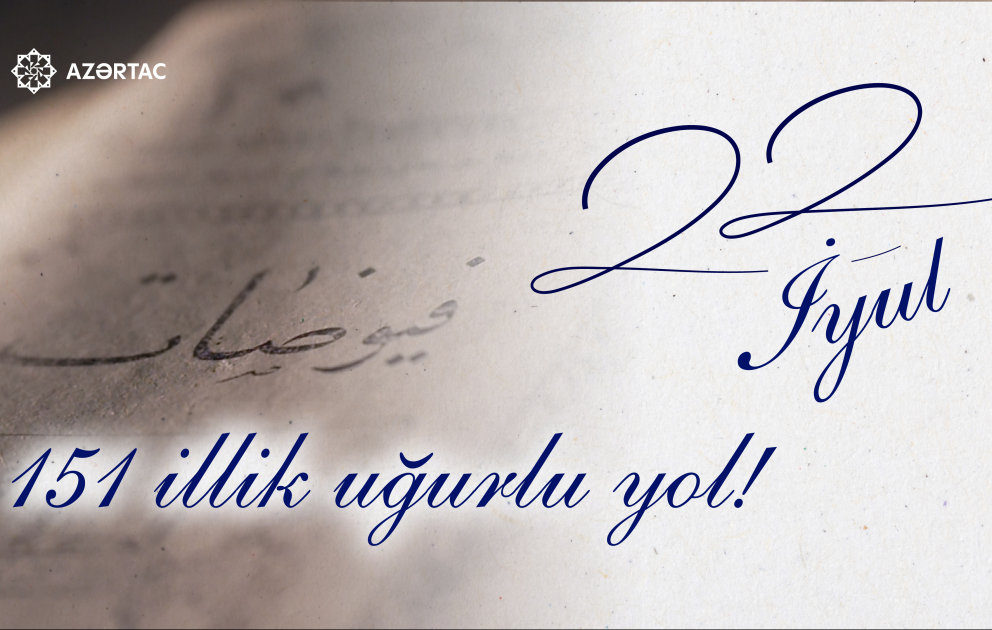 AZƏRTAC
22
İyul
فيوضات
151 illik uğurlu yol!